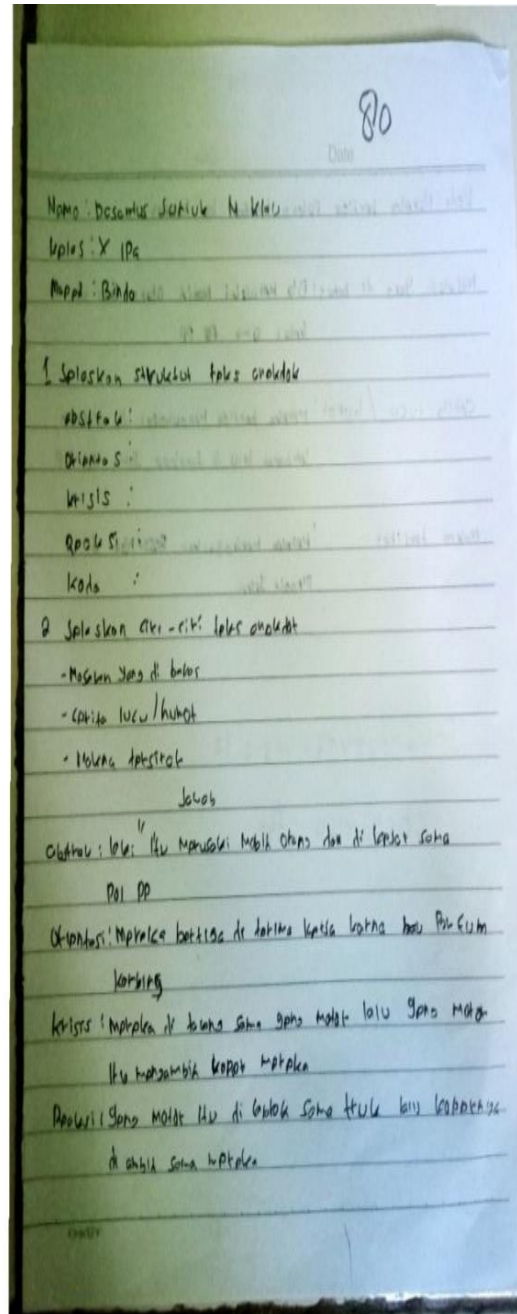 80
Date
Nama : Desantus Juniuk N Klau
Kelas : X IPA
Mappel : Bindo
1 Jelaskan struktut teks anekdok
abstrak :
Orientasi :
krisis :
Reaksi :
Koda :
2 Jelaskan ciri-ciri teks anekdot
- Masalah yang di bahas
- Cerita lucu/humor
- Makna tersirat
Jawab
Abstrak : laki" itu merusaki mobil orang dan di kejar sama
Pol PP
Orientasi : Mereka bertiga di terima kerja karna bau Parfum
kambing
krisis : Mereka di tolong sama geng motor lalu geng motor
itu mengambil koper mereka
Reaksi : geng motor itu di tabrak sama truk lalu kopernya
di ambil sama mereka